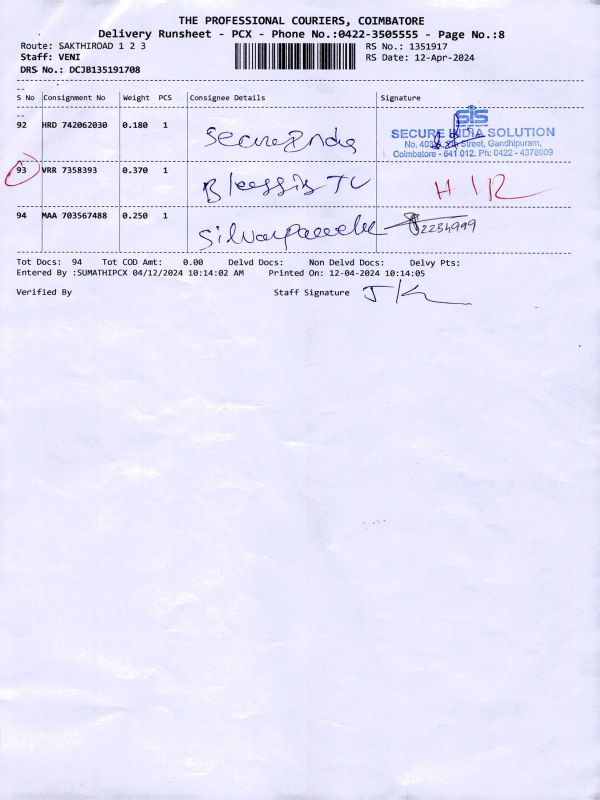 THE PROFESSIONAL COURIERS, COIMBATORE
Delivery Runsheet - PCX - Phone No.:0422-3505555 - Page No.:8
Route: SAKTHIROAD 1 2 3
RS No.: 1351917
Staff: VENI
RS Date: 12-Apr-2024
DRS No.: DCJB135191708
S No Consignment No Weight PCS Consignee Details Signature
92 HRD 742062030 0.180 1 Secure India
SIS
SECURE INDIA SOLUTION
Street, Gandhipuram,
Coimbatore - 641 012. Ph: 0422 - 4378009
93 VRR 7358393 0.370 1
94 MAA 703567488 0.250 1
Tot Docs: 94 Tot COD Amt: 0.00 Delvd Docs: Non Delvd Docs: Delvy Pts:
Entered By :SUMATHIPCX 04/12/2024 10:14:02 AM Printed On: 12-04-2024 10:14:05
Verified By Staff Signature